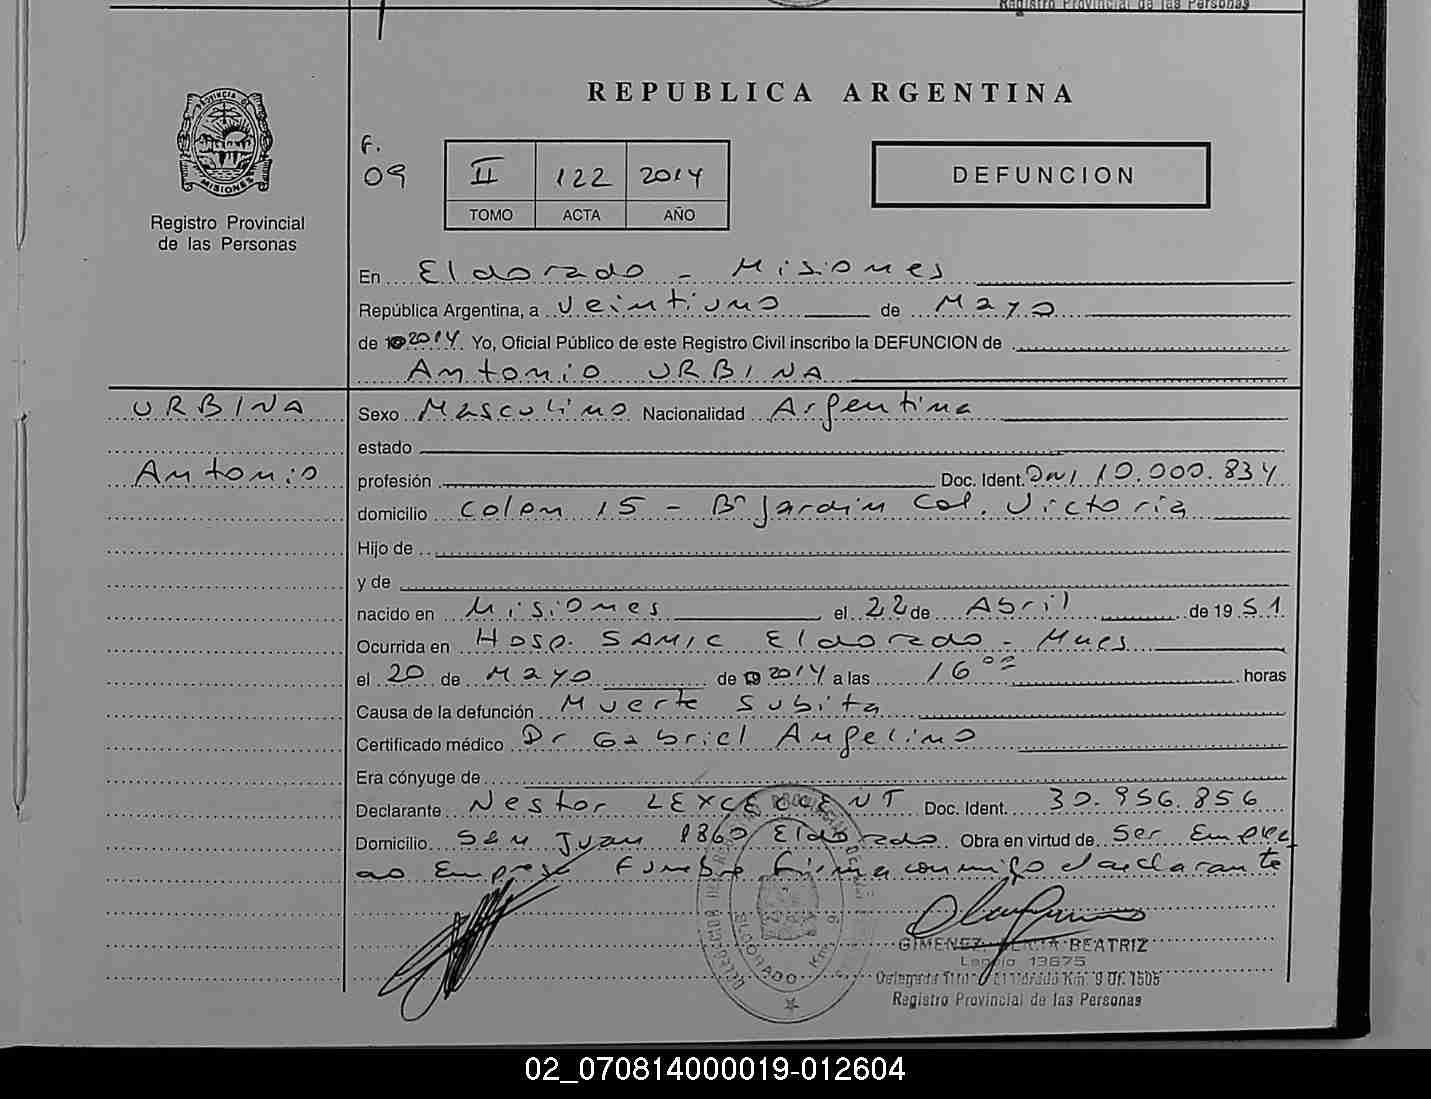 Registro Provincial de las Personas
REPUBLICA ARGENTINA
PROVINCIA DE
MISIONES
Registro Provincial
de las Personas
F.
09
II 122 2014
TOMO ACTA AÑO
DEFUNCION
En Eldorado - Misiones
República Argentina, a veintiuno de Mayo
de 2014 Yo, Oficial Público de este Registro Civil inscribo la DEFUNCION de
Antonio URBINA
URBINA
Antonio
Sexo Masculino Nacionalidad Argentina
estado
profesión Doc. Ident. DNI 10.000.834
domicilio Colon 15 - Bº Jardin Col. Victoria
Hijo de
y de
nacido en Misiones el 22 de Abril de 1951
Ocurrida en Hosp. SAMIC Eldorado - Mnes
el 20 de Mayo de 2014 a las 16ºº horas
Causa de la defunción Muerte Subita
Certificado médico Dr Gabriel Angelino
Era cónyuge de
Declarante Nestor Doc. Ident. 30.956.856
Domicilio San Juan 1860 Eldorado Obra en virtud de Ser Emplea
do Empresa Funebre firma conmigo el declarante
ELDORADO Km. 9
GIMENEZ, BEATRIZ
Legajo 13675
Delegada Titular Eldorado Km. 9 Of. 1505
Registro Provincial de las Personas
02_070814000019-012604